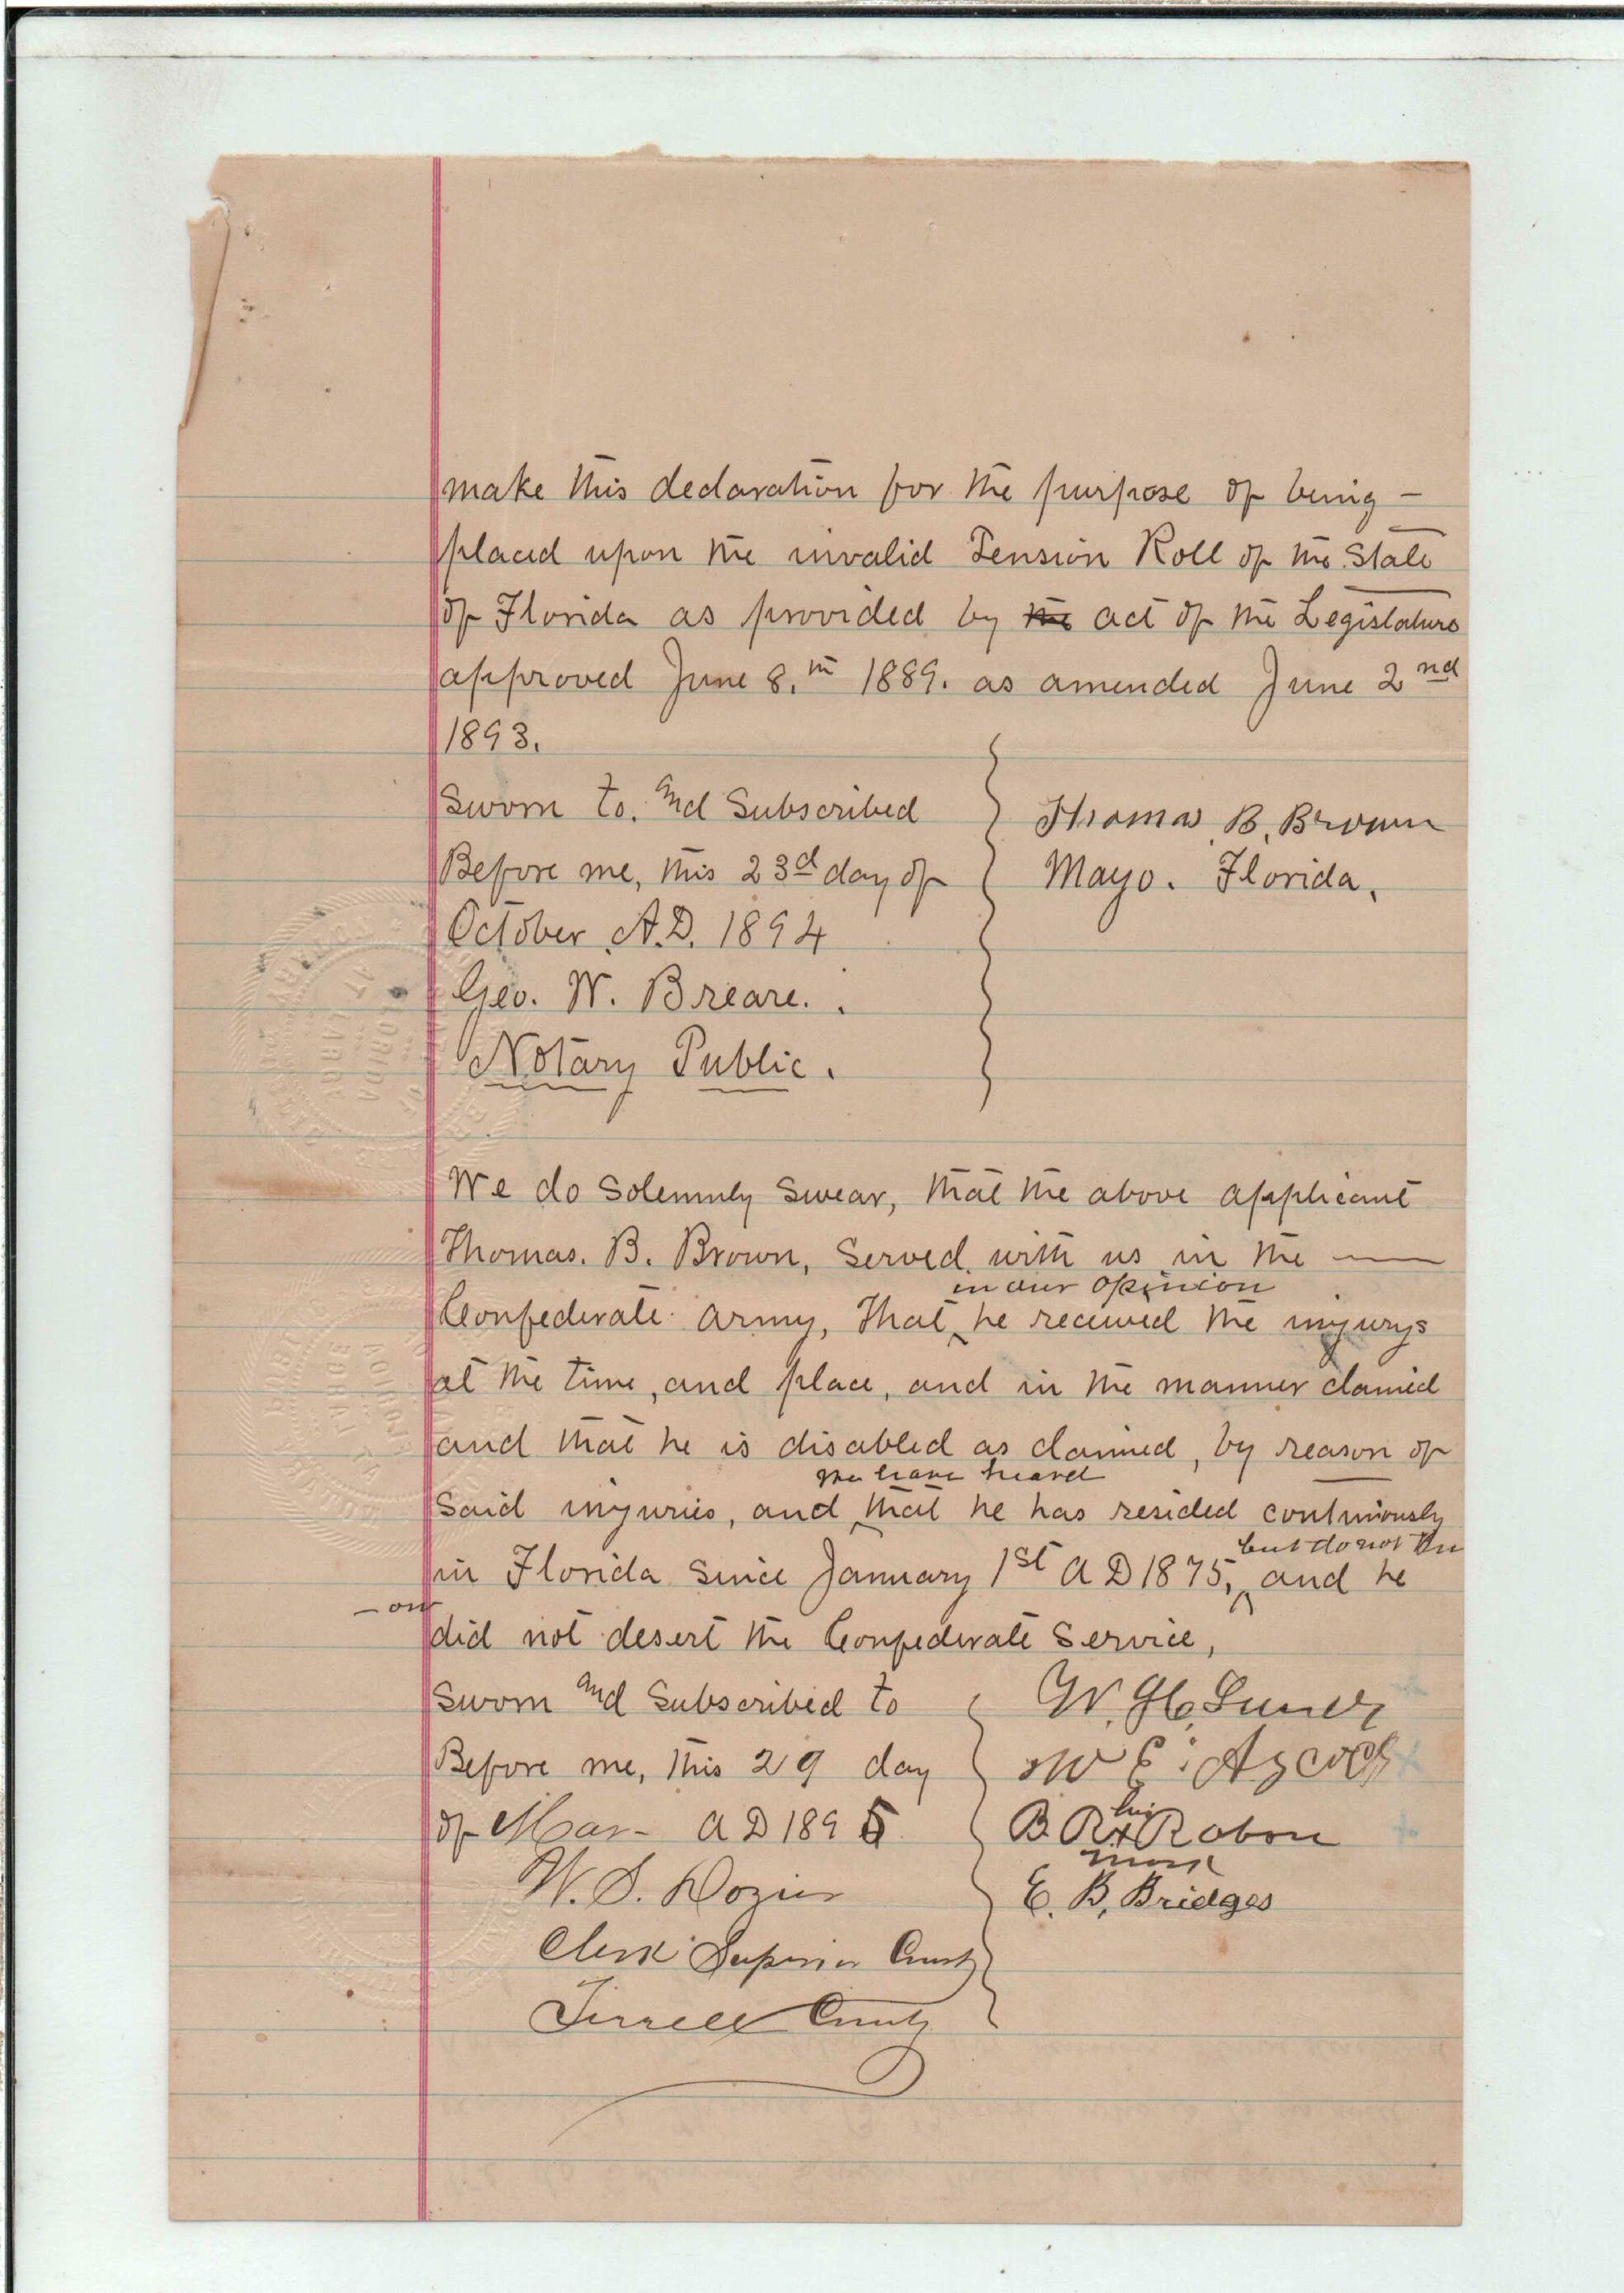 make this declaration for the purpose of being -
placed upon the invalid Pension Roll of the State
of Florida as provided by the act of the Legislature
approved June 8.th 1889. as amended June 2nd
1893.
Sworn to. and Subscribed
Before me, this 23d day of
October A.D. 1894
Geo. W. Breare.
Notary Public.
Thomas B. Brown
Mayo. Florida.
We do Solemnly Swear, that the above applicant
Thomas. B. Brown, Served with us in the —
in our opinion
Confederate army, That he received the injurys
at the time, and place, and in the manner claimed
and that he is disabled as claimed, by reason of
we have heard
Said injuries, and that he has resided continiously
but do not Kn
in Florida Since January 1st A D 1875, and he
- ow
did not desert the Confederate Service,
Sworn and Subscribed to
Before me, this 29 day
of Mar- A D 1895
W. S. Dozier
Clerk Superior Court
Terrell County
W. H.
W E. Aycock
his
B. R. x Rabon
mark
E. B. Bridges
NOTARY PUBLIC
FLORIDA
AT
LARGE